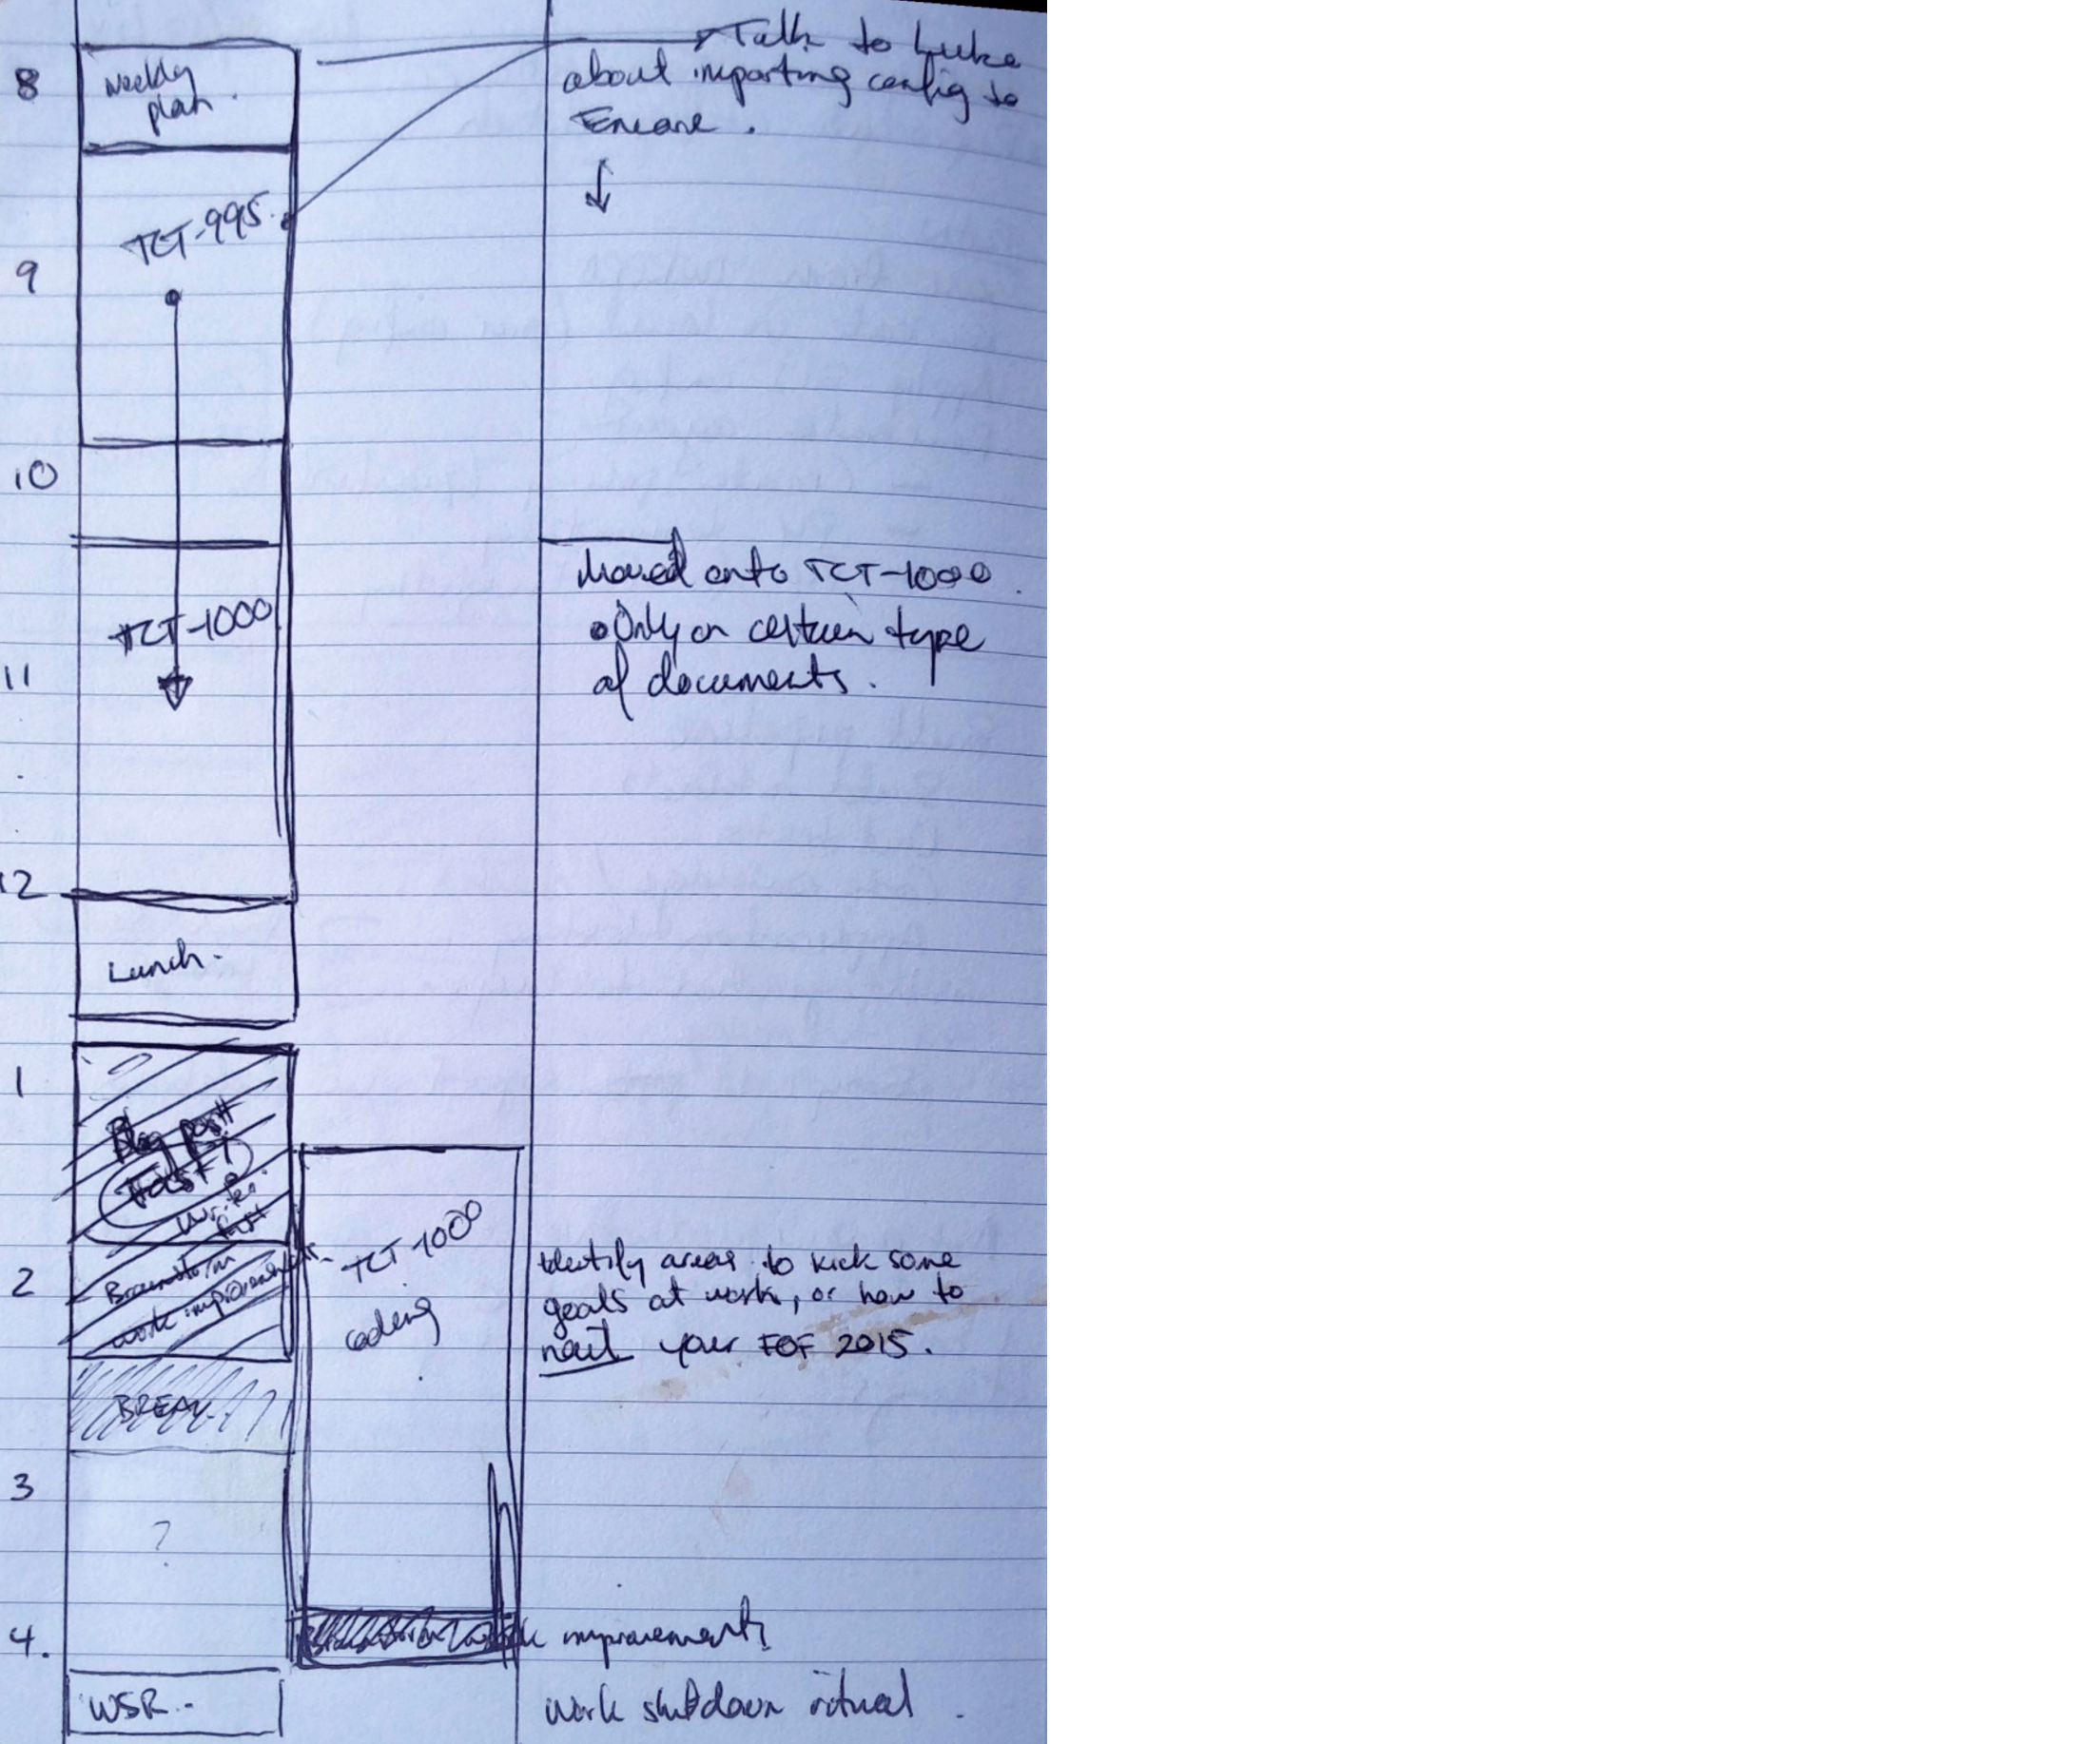 8
weekly
plan.
Talk to Luke
about importing config to
TCT-995.
9
10
Moved onto TCT-1000.
• Only on certain type
of documents.
TCT-1000
11
12
Lunch.
1
Blog post
Write
Post
Brainstorm
work improvements
TCT-1000
coding
2
Identify areas to kick some
goals at work, or how to
nail your FOF 2015.
BREAK
3
?
4.
Brainstorm work improvements
WSR.-
Work shutdown ritual.